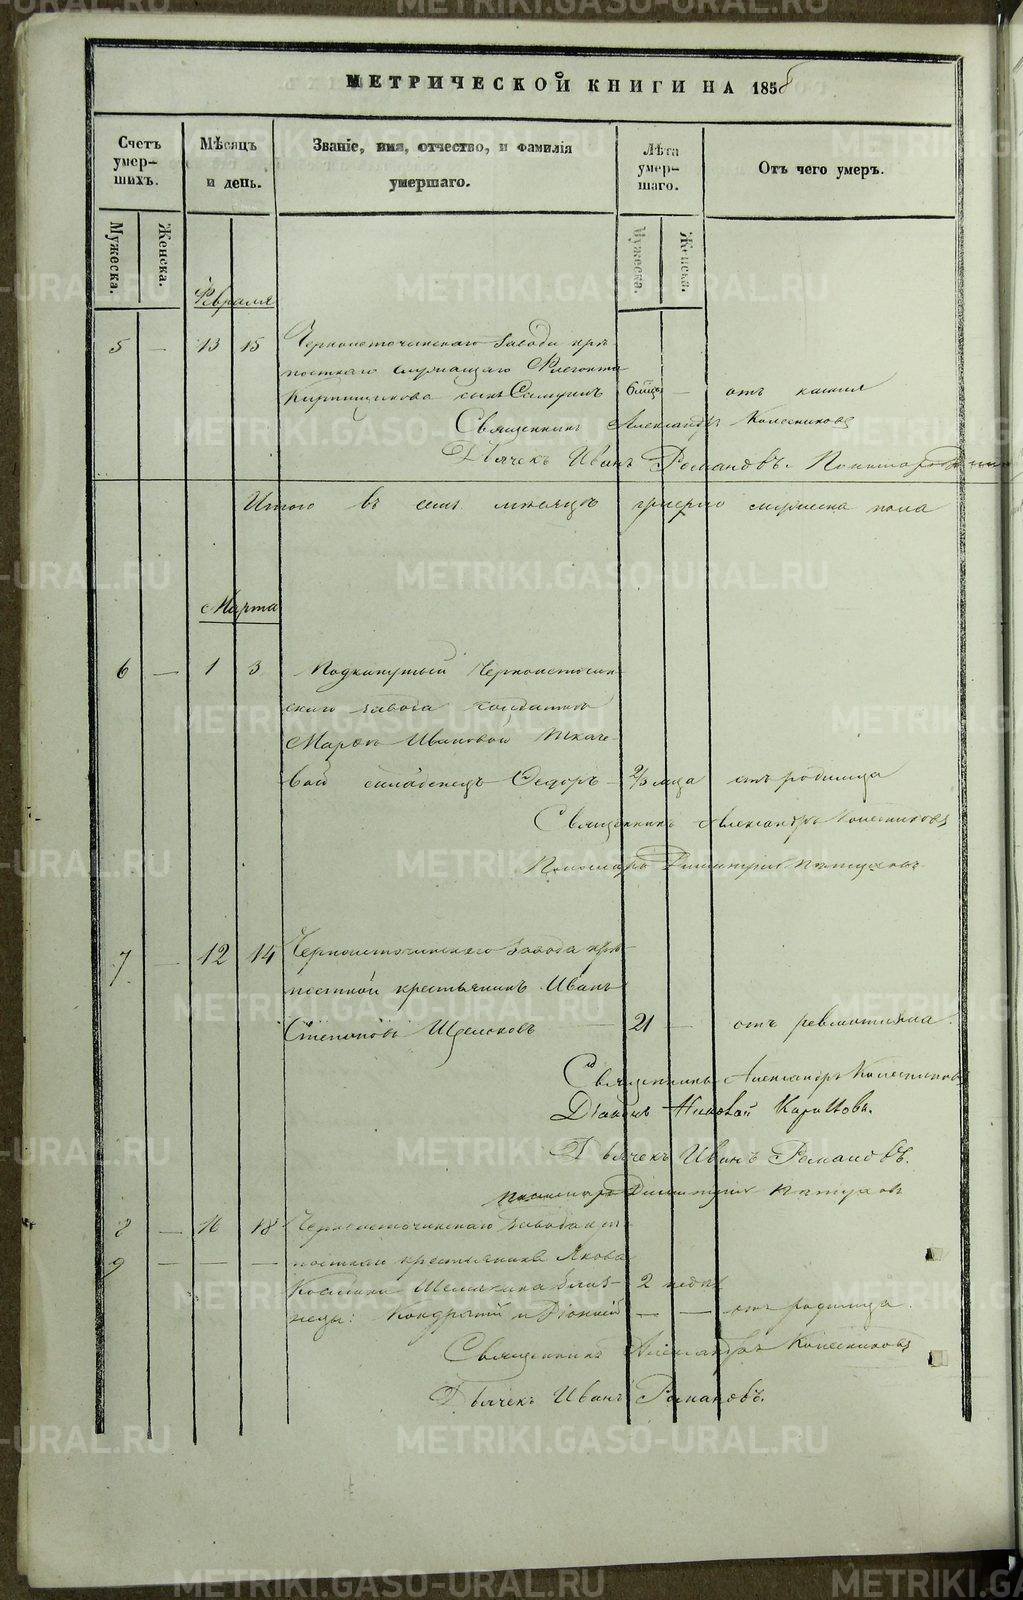 МЕТРИЧЕСКОЙ КНИГИ НА 1858
Счетъ умер-шихъ.
Мѣсяцъ и день.
Званіе, имя, отчество, и фамилія умершаго.
Лѣта умер-шаго.
Отъ чего умеръ.
Мужеска.
Женска.
Мужеска.
Женска.
Февраля
5 — 13 15 Черноисточинскаго завода крѣ-
постнаго служащаго Флегонта
Кирпищикова сынъ 6 мцъ — отъ кашля
Священникъ Александръ Колесниковъ
Дьячекъ Иванъ Романовъ.
Итого въ семъ мѣсяцѣ мужеска пола
Марта
6 — 1 3 Подкинутый Черноисточин-
скаго завода солдаткѣ
Марѳѣ Ивановой Ткаче-
вой младенецъ Ѳедоръ — 2/3 мца отъ родимца
Священникъ Александръ Колесниковъ
Пономарь Димитрій Пѣтуховъ
7 — 12 14 Черноисточинскаго завода крѣ-
постной крестьянинъ Иванъ
Степановъ Щелоковъ — 21 — отъ ревматизма.
Священникъ Александръ Колесниковъ
Діаконъ Николай
Дьячекъ Иванъ Романовъ.
Пономарь Димитрій Пѣтуховъ
8 — 16 18 Черноисточинскаго завода крѣ-
9 — — — постнаго крестьянина Якова
Козмина близ- 2 недѣ
нецы: Кондратій и Діонисій — — отъ родимца.
Священникъ Александръ Колесниковъ
Дьячекъ Иванъ Романовъ.
METRIKI.GASO-URAL.RU